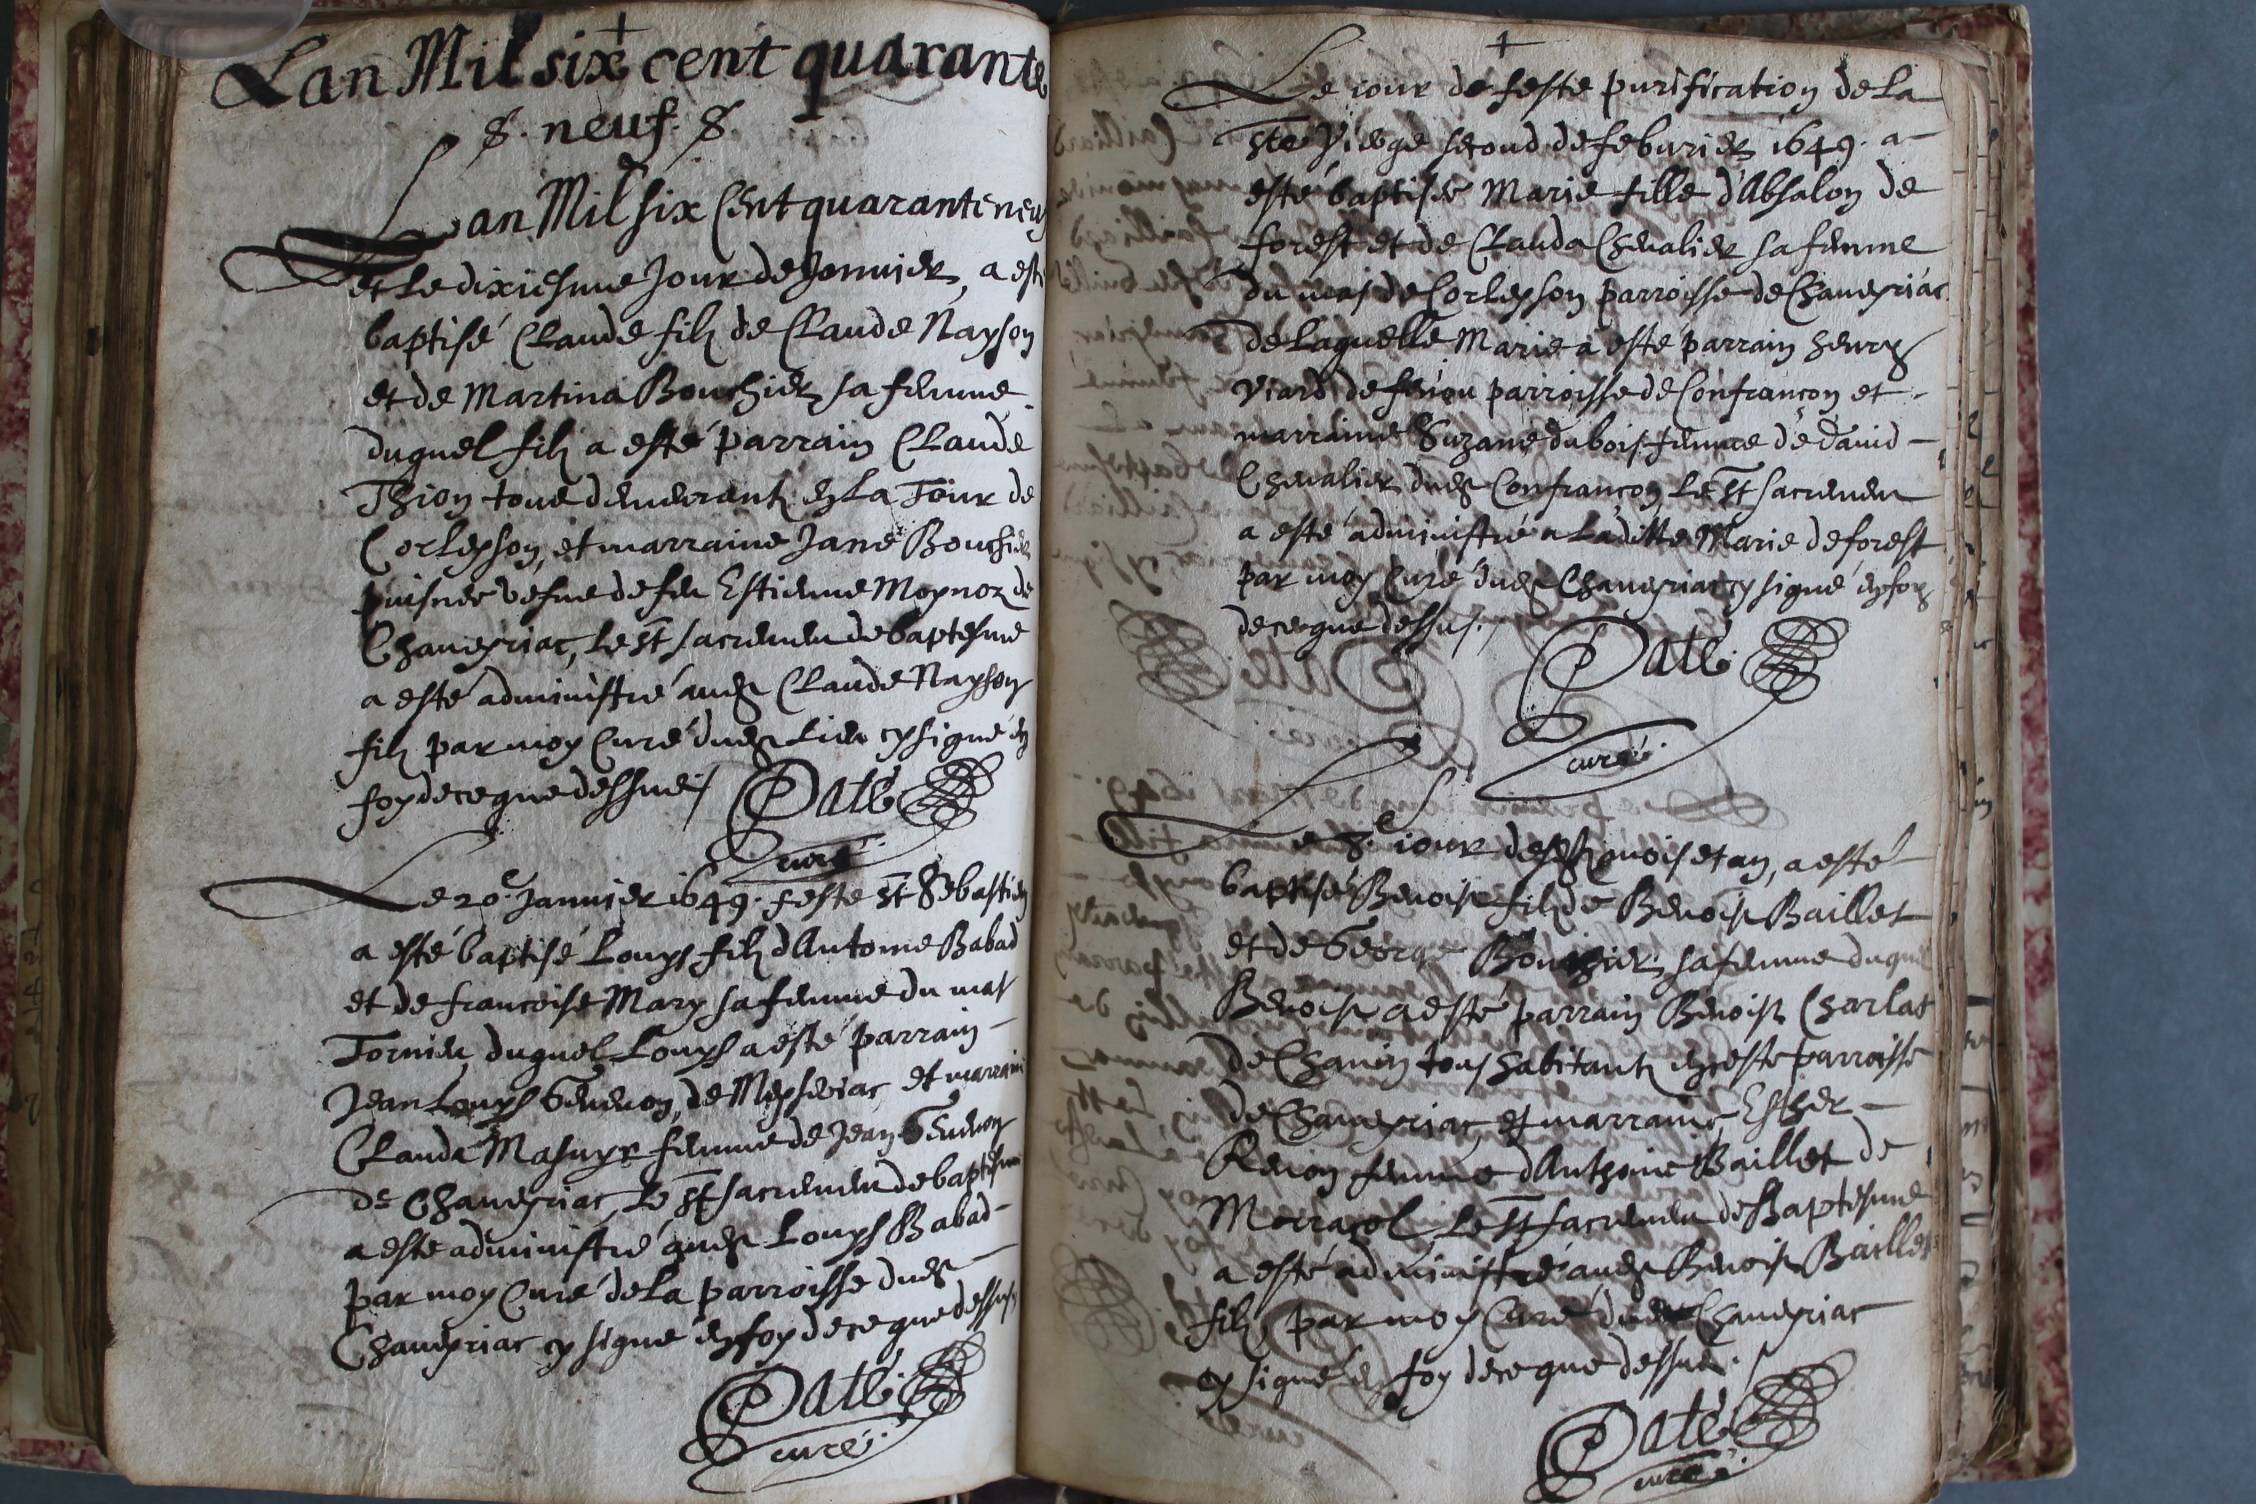 Lan Mil six cent quarante
neuf.
Lan Mil six Cent quarante neuf
et le dixiesme Jour de Janvier, a esté
baptisé Claude filz de Claude Nayson
et de Martina Bouchier sa femme
duquel filz a esté parrain Claude
Thion tous demeurantz en La Tour de
Corleyson, et marraine Jane Bouchier
puisnee vefue de feu Estienne Moynoz de
Chaueyriac, le st sacrement de baptesme
a esté administré audt Claude Nayson
filz par moy Curé dudt Lieu cy signé en
foy de ce que dessus
Paté
curé
Le 20e Januier 1649. feste st Sebastien
a esté baptisé Louys filz dAntoine Babad
et de francoise Mary sa femme du mas
Tornieu, duquel Louys a esté parrain
Jean Louys Geneuoy, de Meyseriac et marraine
Clauda Masuyr femme de Jean Geneuoy
de Chaueyriac, le st sacrement de baptesme
a esté administré audt Louys Babad
par moy Curé de la parroisse dudt
Chaueyriac cy signé en foy de ce que dessus
Paté
curé
Le iour de feste purification de La
ste Vierge second de feburier 1649. a
esté baptisée Marie fille d'Absalon de
forest et de Clauda Cheualier sa femme
du mas de Corleyson parroisse de Chaueyriac
de Laquelle Marie a esté parrain henry
Viard de feriou parroisse de Confrançon et
marraine Suzane dubois femme de dauid
Cheualier dudt Confrançon, Le st sacrement
a esté administré a Laditte Marie deforest
par moy Curé dudt Chaueyriac cy signé en foy
de ce que dessus.
Paté
curé
Le 8e iour desdtz mois et an, a esté
baptisé Benoist filz de Benoist Baillet
et de George Bouchier sa femme duquel
Benoist a esté parrain Benoist Charlat
de Chanin tous habitantz en ceste parroisse
de Chaueyriac, et marraine Esther
Reuon femme dAnthoine Baillet de
Morracol Le st sacrement de Baptesme
a esté administré audt Benoist Baillet
filz par moy Curé dudt Chaueyriac
cy signé en foy de ce que dessus.
Paté
curé